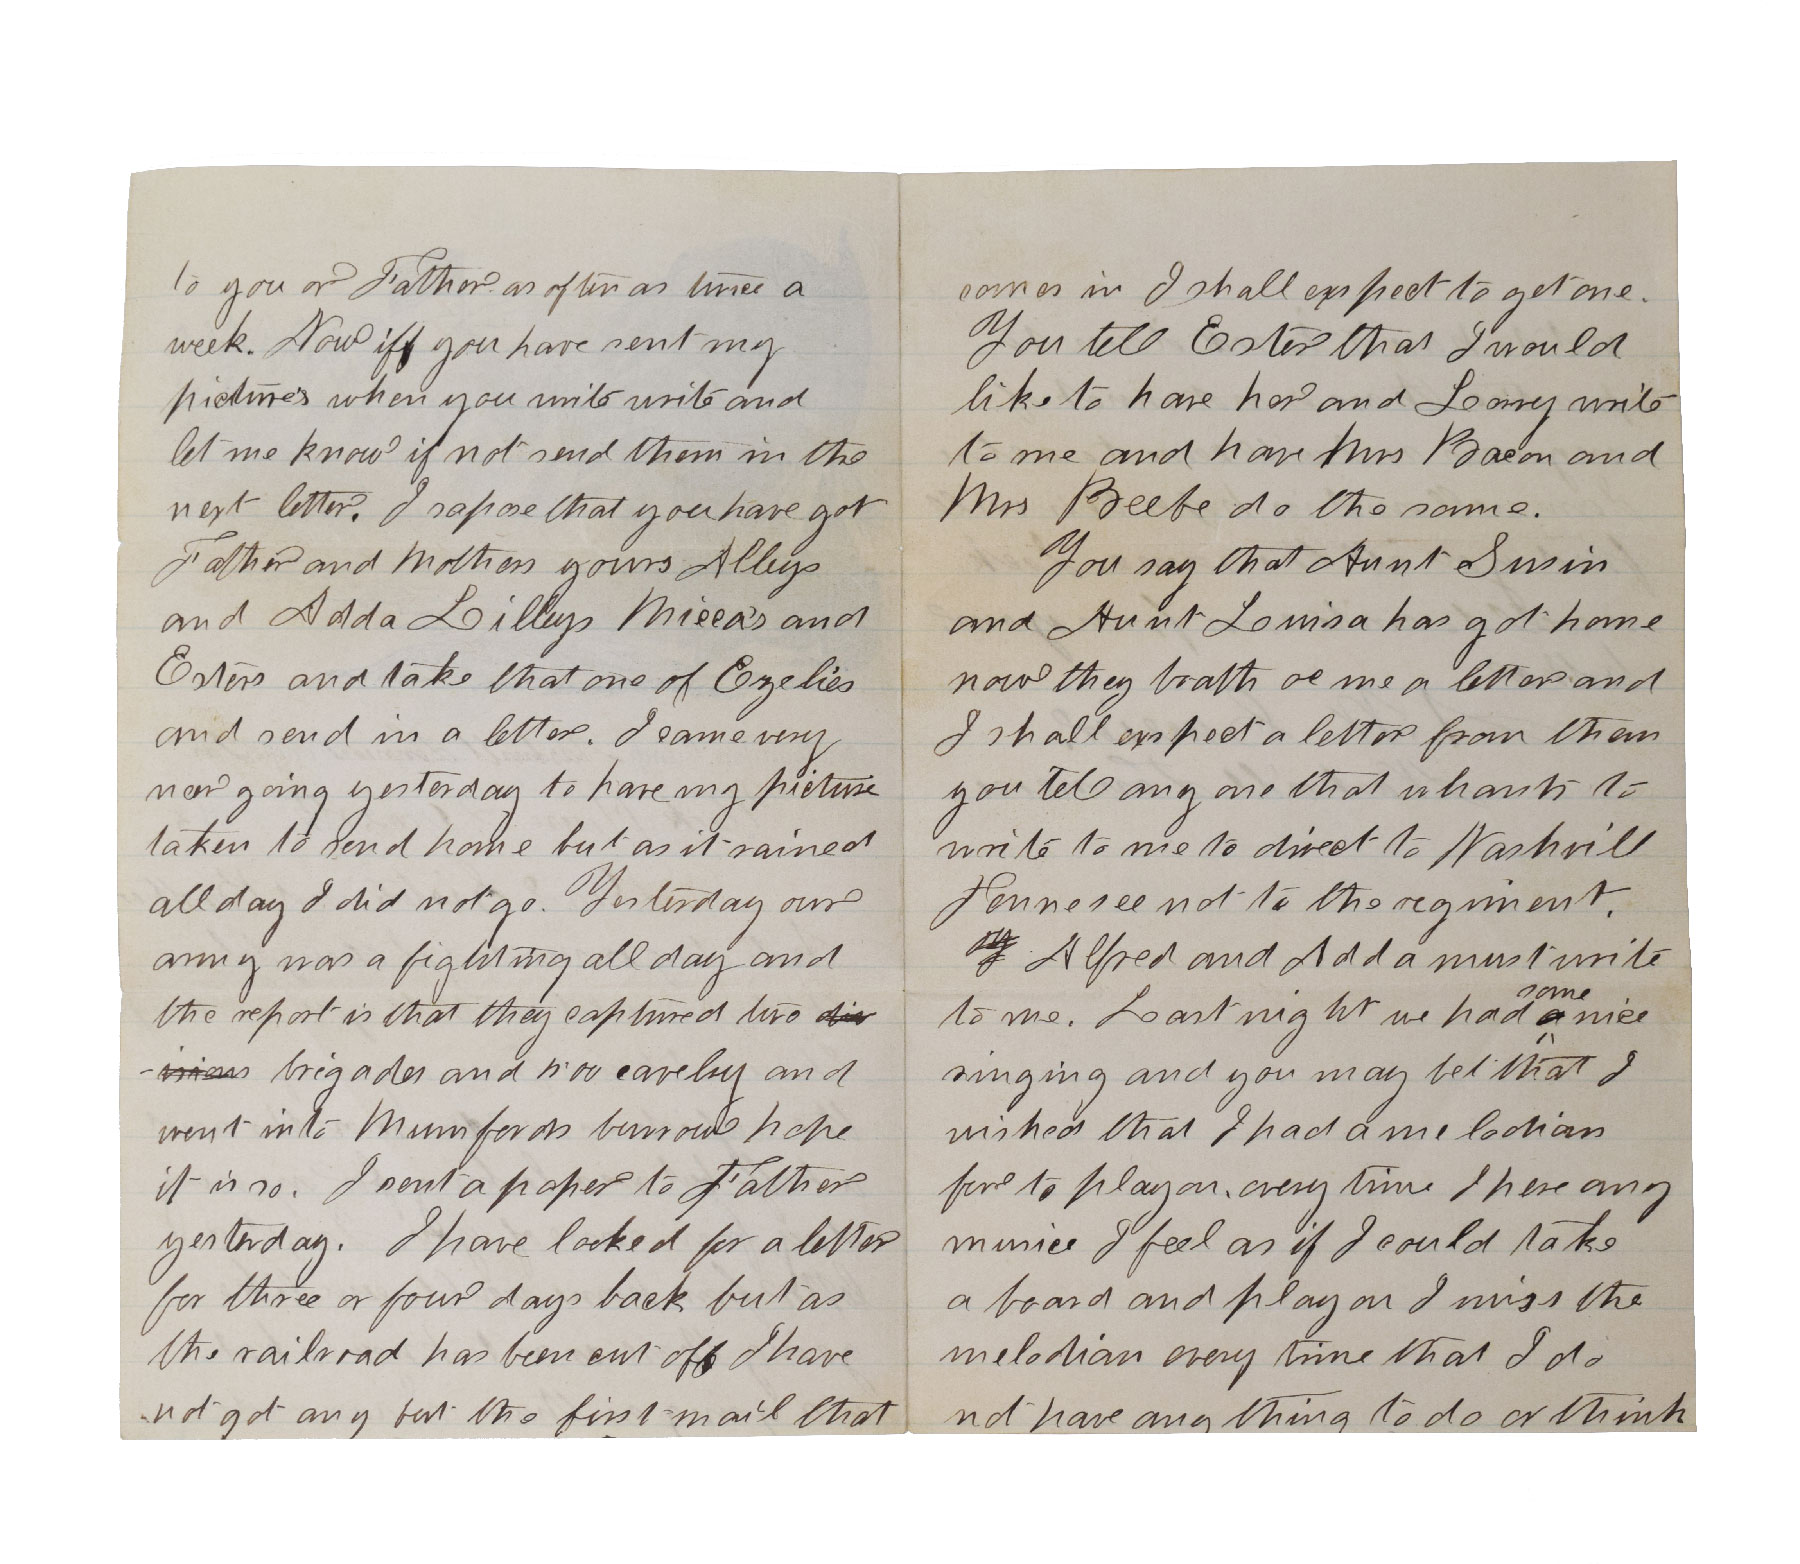 to you or Father as often as twice a
week. Now if you have sent my
pictures when you write write and
let me know if not send them in the
next letter. I sapose that you have got
Father and Mothers yours Alleys
and Adda Lilleys Micca's and
Esters and take that one of Ezelies
and send in a letter. I came very
near going yesterday to have my picture
taken to send home but as it rained
all day I did not go. Yesterday our
army was a fighting all day and
the report is that they captured two div
isions brigades and 1500 cavelry and
went into Mumfords burrow hope
it is so. I sent a paper to Father
yesterday. I have looked for a letter
for three or four days back but as
the railroad has been cut off I have
not got any but the first mail that
comes in I shall expect to get one.
You tell Ester that I would
like to have her and write
to me and have Mrs Bacon and
Mrs Beebe do the same.
You say that Aunt Susin
and Aunt Louisa has got home
now they both oe me a letter and
I shall expect a letter from them
you tell any one that whants to
write to me to direct to Nashvill
Tennesee not to the regiment.
Alfred and Adda must write
to me. Last night we had some nice
singing and you may bet that I
wished that I had a melodian
for to play on. every time I here any
musice I feel as if I could take
a board and play on I miss the
melodian every time that I do
not have any thing to do or think